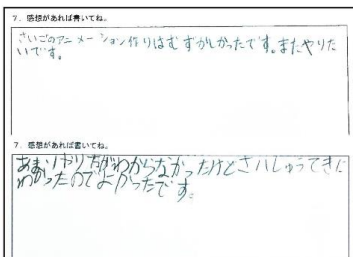 7. 感想があれば書いてね。
さいごのアニメーション作りはむずかしかったです。またやりた
いです。
7. 感想があれば書いてね。
あまりやり方がわからなかったけどさいしゅうてきに
わかったのでよかったです。